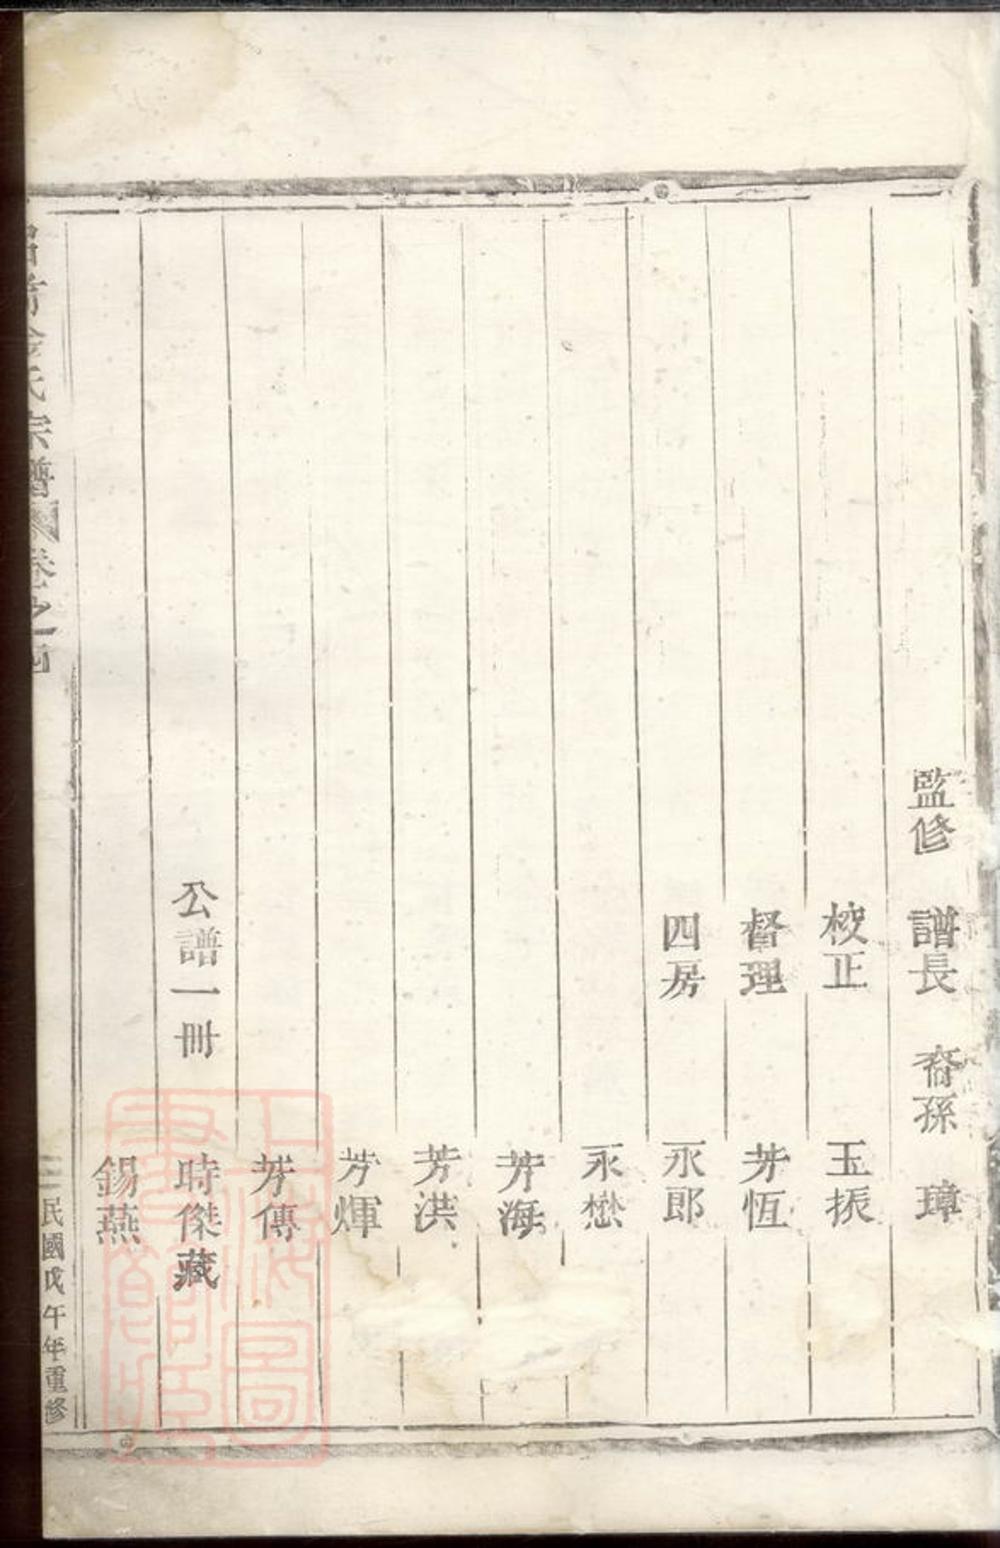 監修 譜長 裔孫 璋
校正 玉振
督理 芳恆
四房 永郎
永懋
芳海
芳洪
芳輝
芳傳
公譜一冊 時傑藏
錫燕
氏宗譜 卷之四 民國戊午年重修
上海圖書館藏